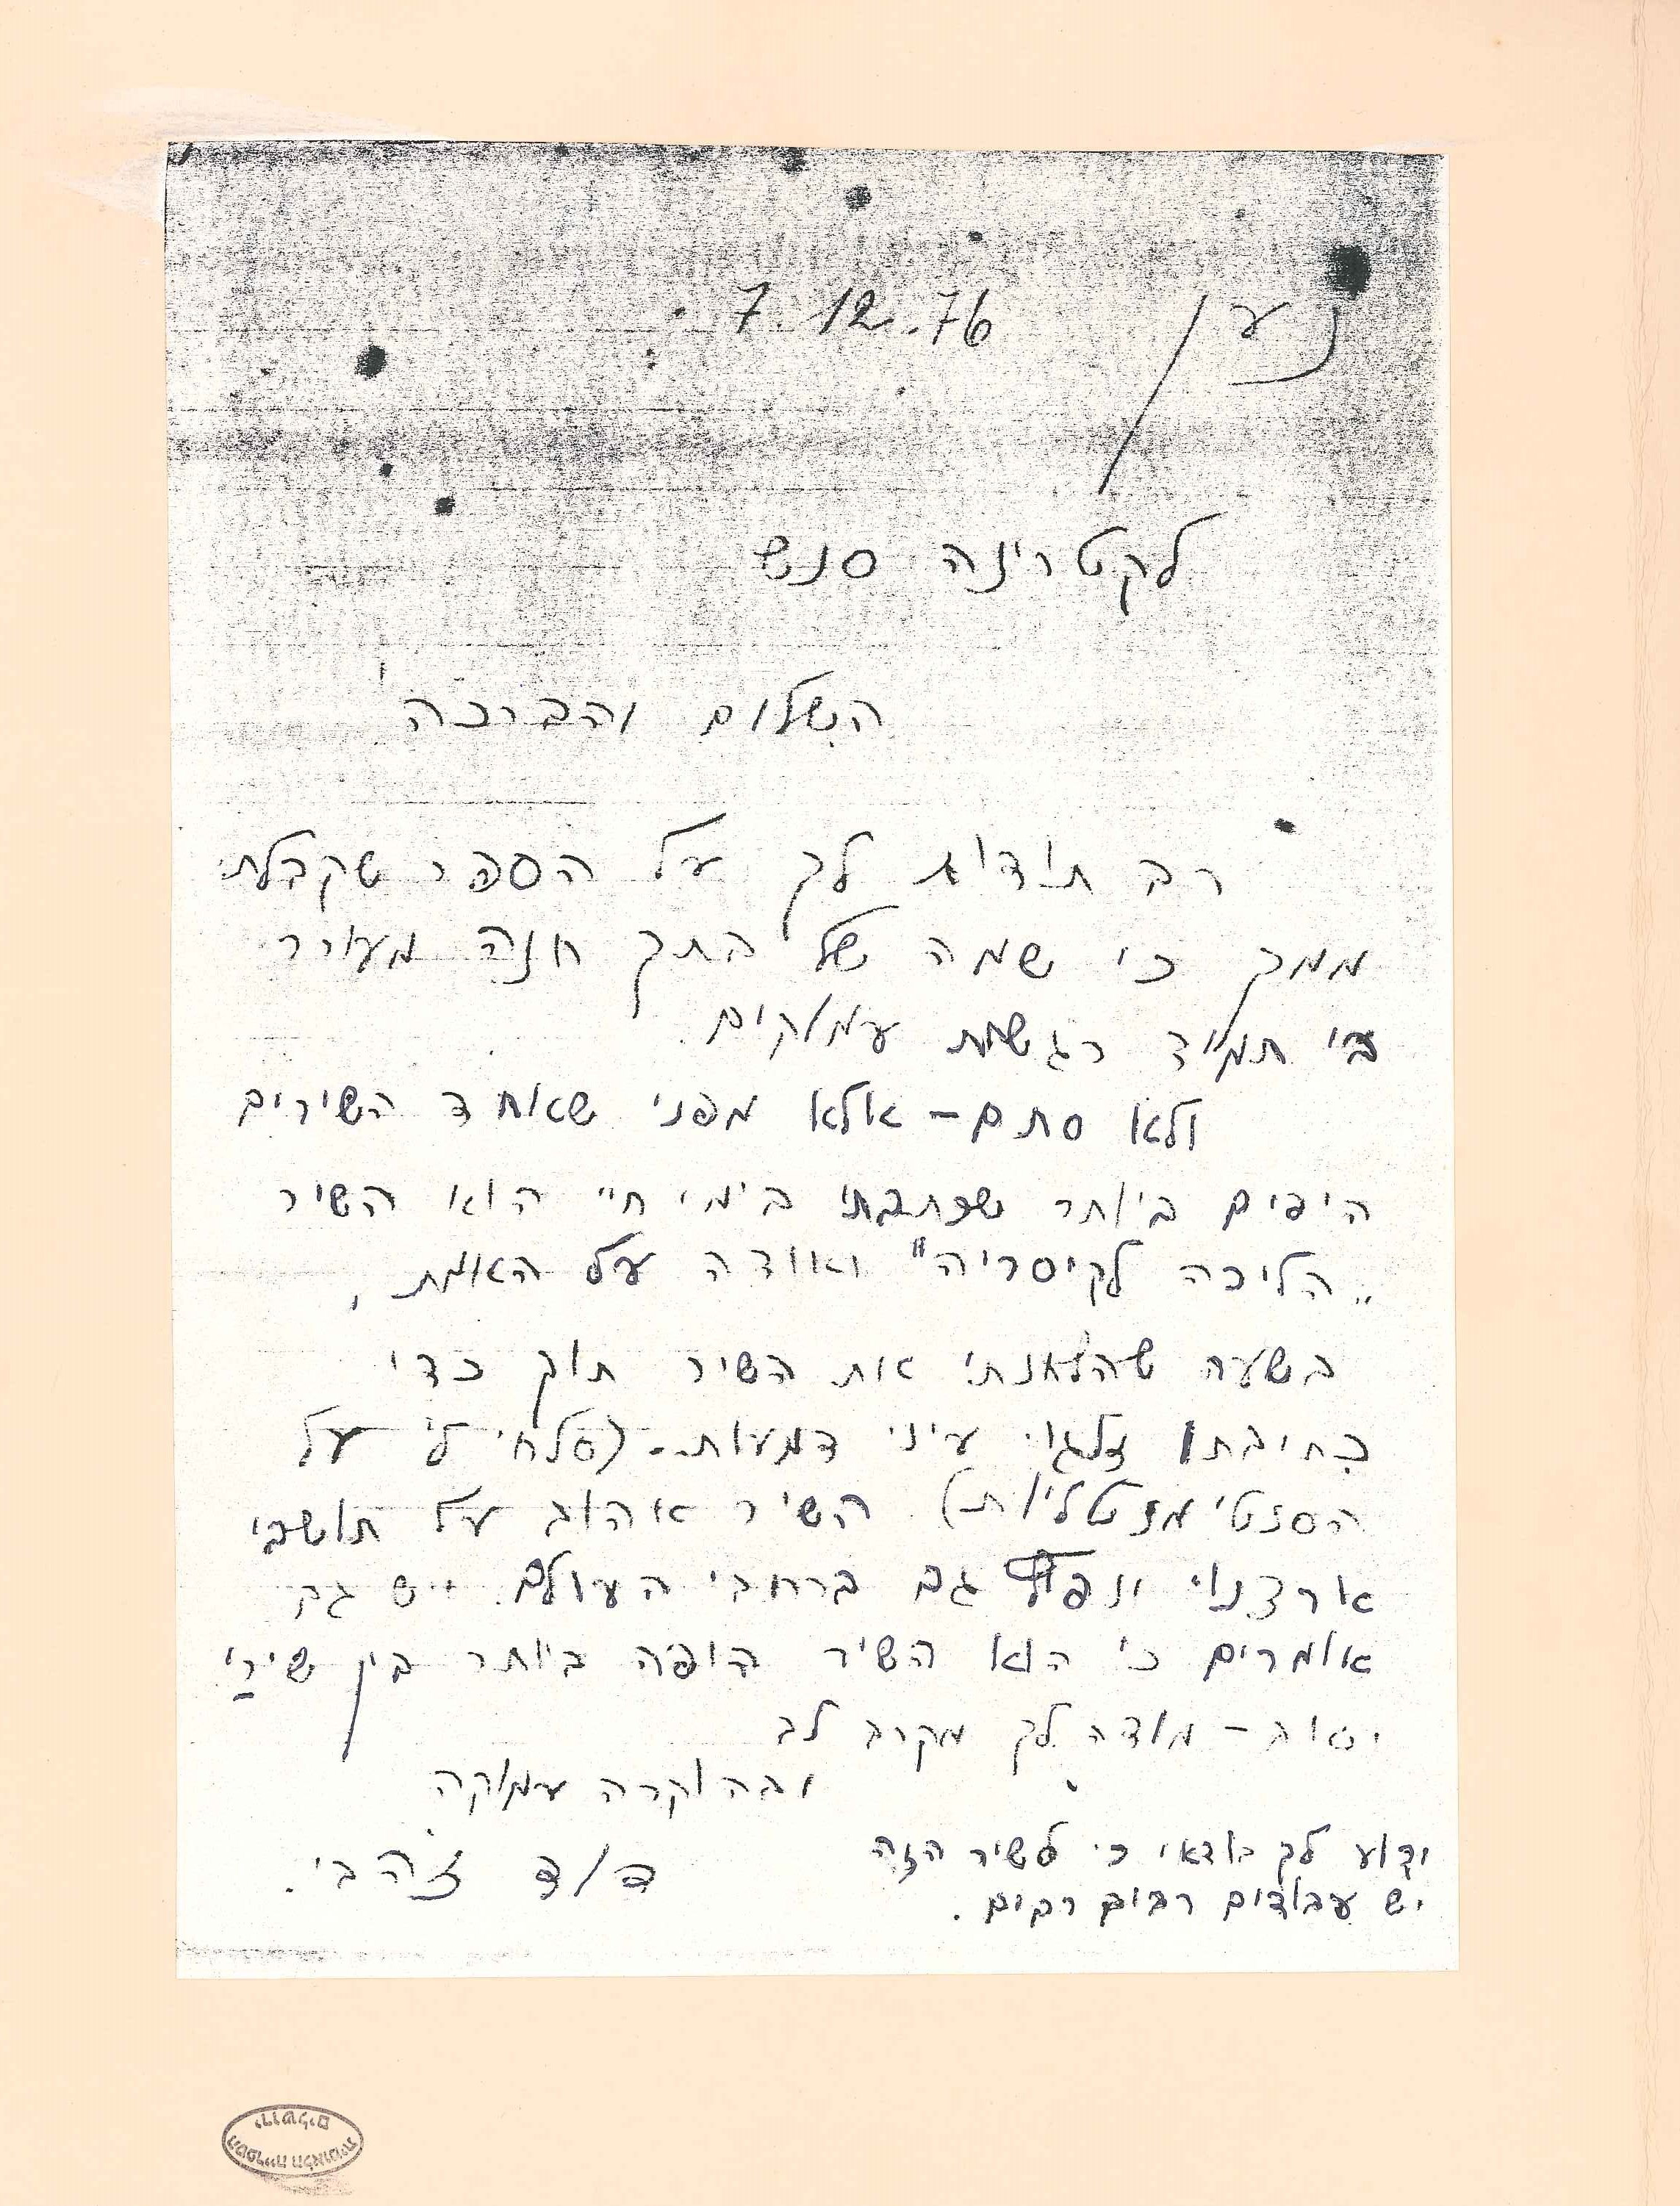 נען 7.12.76
לקטרינה סנש
השלום והברכה
רב תודות לך על הספר שקבלתי
ממך כי שמה של בתך חנה מעורר
בי תמיד רגשות עמוקים.
ולא סתם – אלא מפני שאחד השירים
היפים ביותר שכתבתי בימי חיי הוא השיר
„הליכה לקיסריה" ואודה על האמת,
בשעה שהלחנתי את השיר תוך כדי
כתיבתו זלגו עיני דמעות.. (סלחי לי על
הסנטימנטליות). השיר אהוב על תושבי
ארצנו ונפוץ גם ברחבי העולם. יש גם
אומרים כי הוא השיר היפה ביותר בין שירַי
זאת – מודה לך מקרב לב
ובהוקרה עמוקה
דוד זהבי.
ידוע לך בודאי כי לשיר הזה
יש עבודים רבים רבים.
ירושלים
הספרייה הלאומית